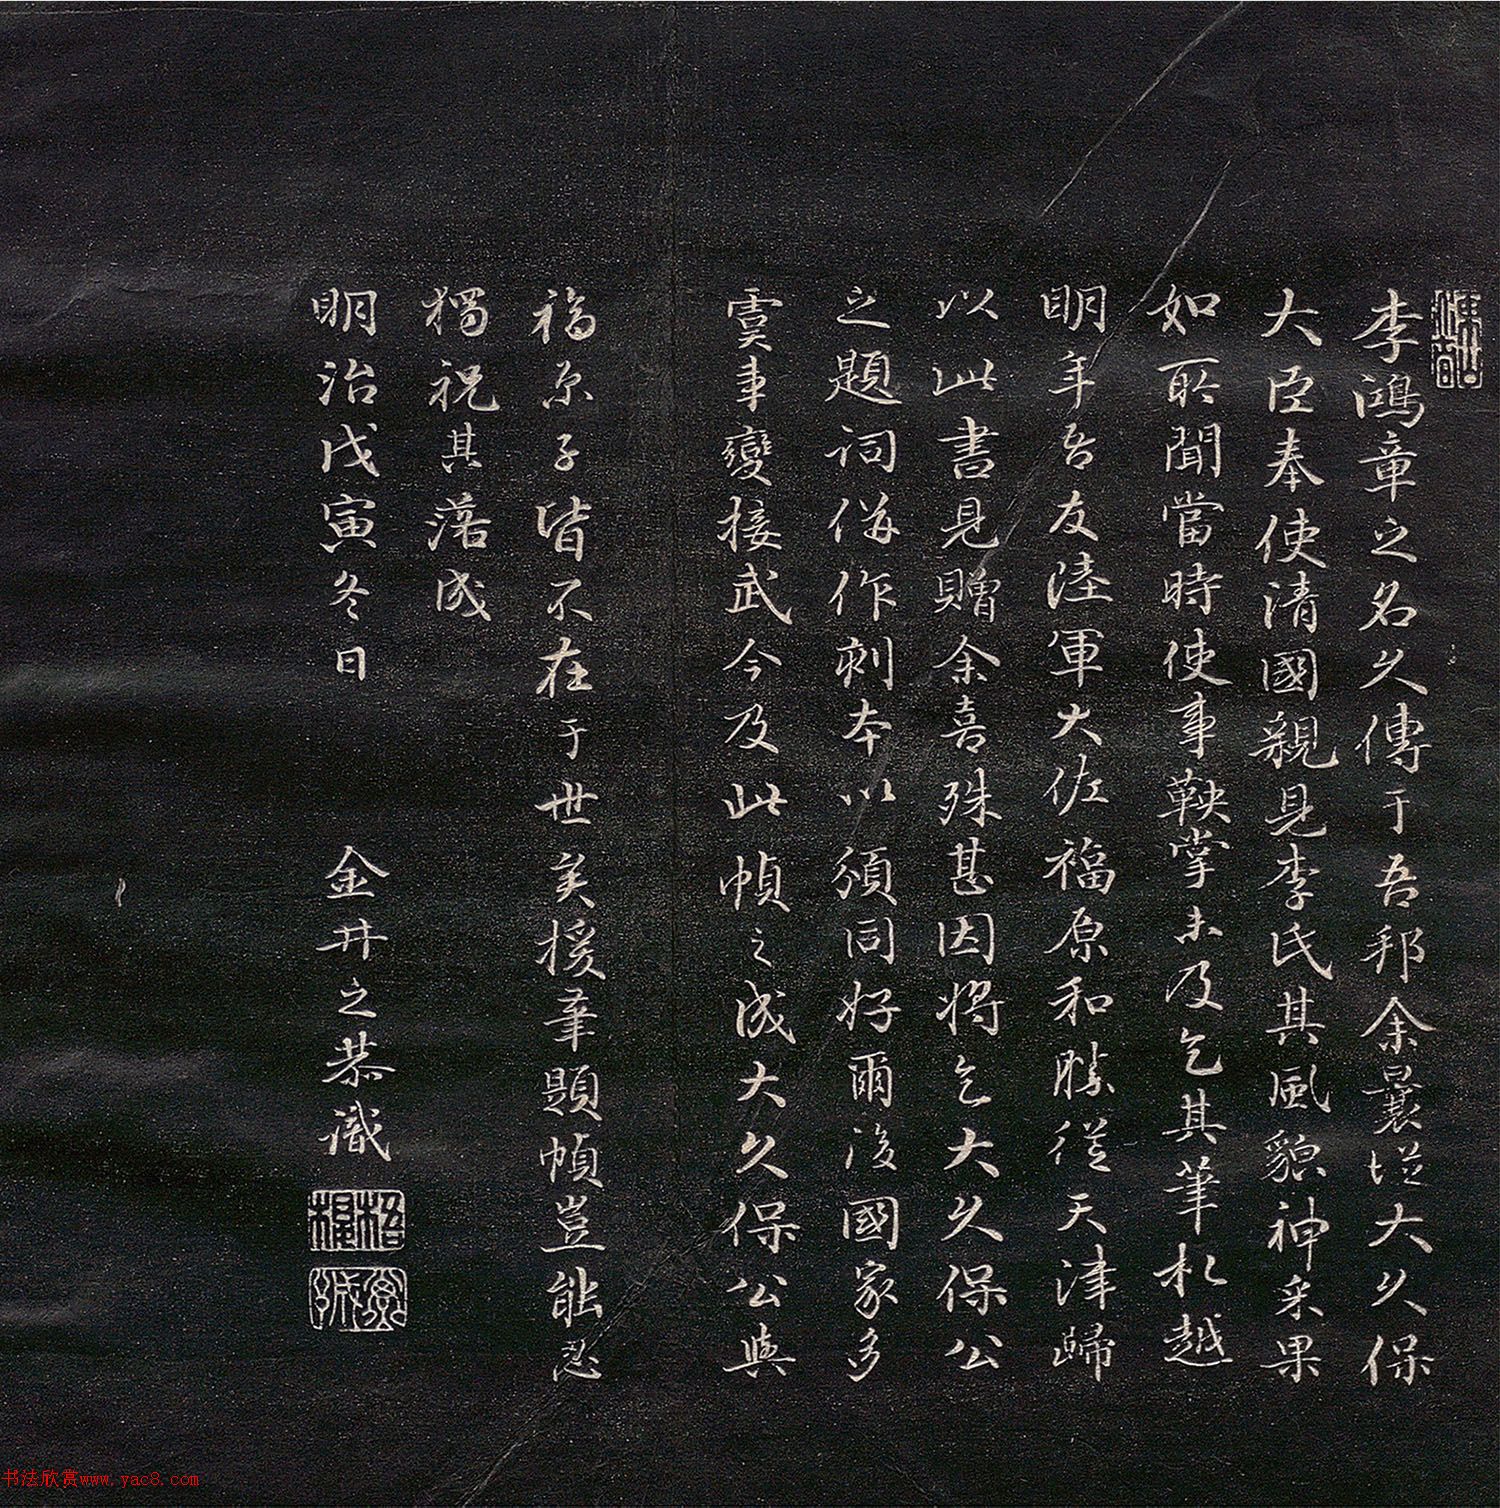 李鴻章之名久傳于吾邦余曩從大久保
大臣奉使清國親見李氏其風貌神采果
如所聞當時使事鞅掌未及乞其筆札越
明年吾友陸軍大佐福原和勝從天津歸
以此書見贈余喜殊甚因將乞大久保公
之題詞併作刺本以頒同好爾後國家多
虞事變接武今及此幀之成大久保公與
福原子皆不在于世矣援筆題幀豈能忍
獨祝其落成
明治戊寅冬日 金井之恭識
梧楼
书法欣赏www.yac8.com